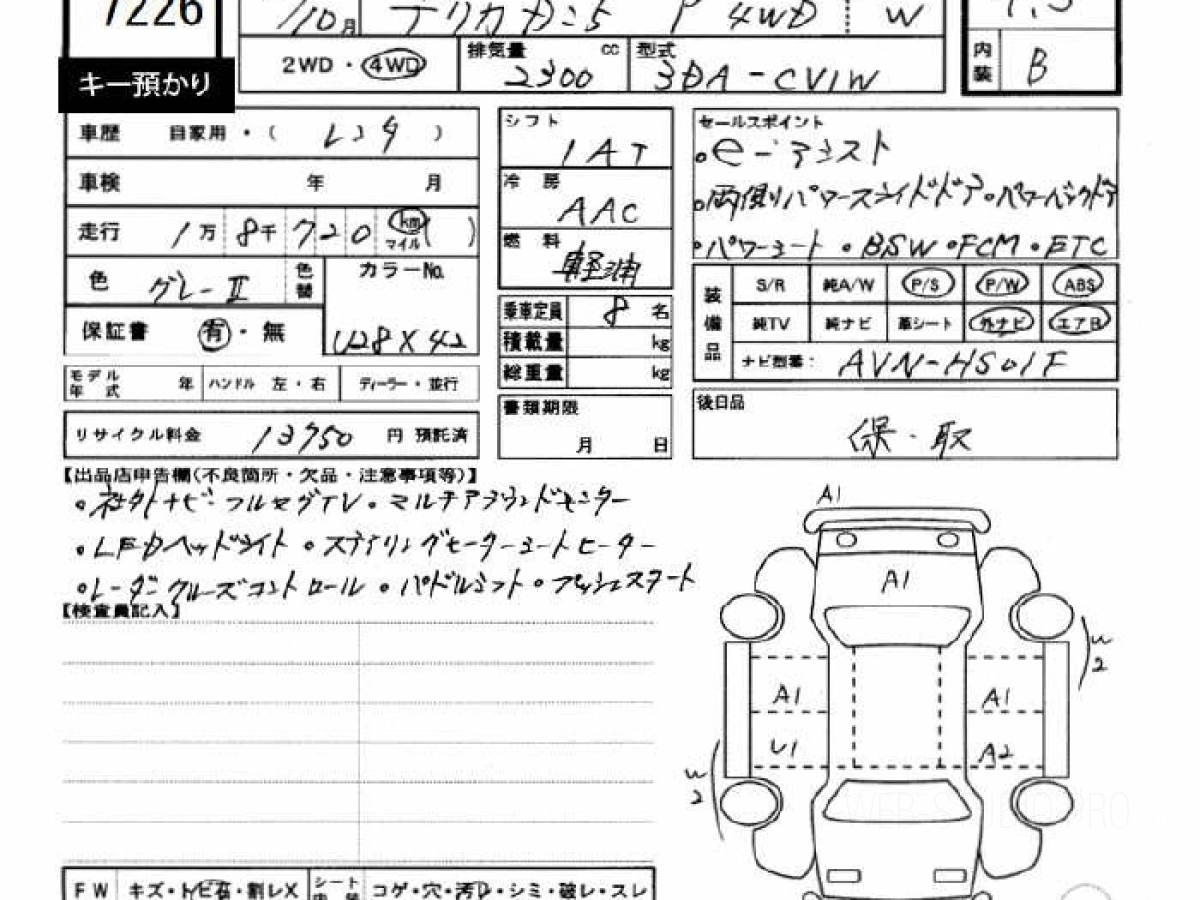 7226
/10月 デリカD:5 P 4WD W
キー預かり
2WD・4WD 排気量 cc 2300 型式 3DA-CV1W
内装 B
車歴 自家用・( レンタ )
車検 年 月
走行 1万 8千 720 km マイル ( )
色 グレーII 色替 カラーNo. U28X42
保証書 有・無
モデル年式 年 ハンドル 左・右 ディーラー・並行
リサイクル料金 13750 円 預託済
シフト IAT
冷房 AAC
燃料 軽油
乗車定員 8 名
積載量 kg
総重量 kg
書類期限 月 日
セールスポイント
・e-アシスト
・両側パワースライドドア・パワーバックドア
・パワーシート・BSW・FCM・ETC
装備品 S/R 純A/W P/S P/W ABS
純TV 純ナビ 革シート 外ナビ エアB
ナビ型番: AVN-HS01F
後日品
保・取
【出品店申告欄(不良箇所・欠品・注意事項等)】
・社外ナビ・フルセグTV・マルチアラウンドモニター
・LEDヘッドライト・ステアリングヒーターシートヒーター
・レーダークルーズコントロール・パドルシフト・プッシュスタート
【検査員記入】
A1
A1
W2
A1 A1
U1 A2
W2
WEB STUDIO PRO
FW キズ・トビ石・割レX シート コゲ・穴・汚レ・シミ・破レ・スレ